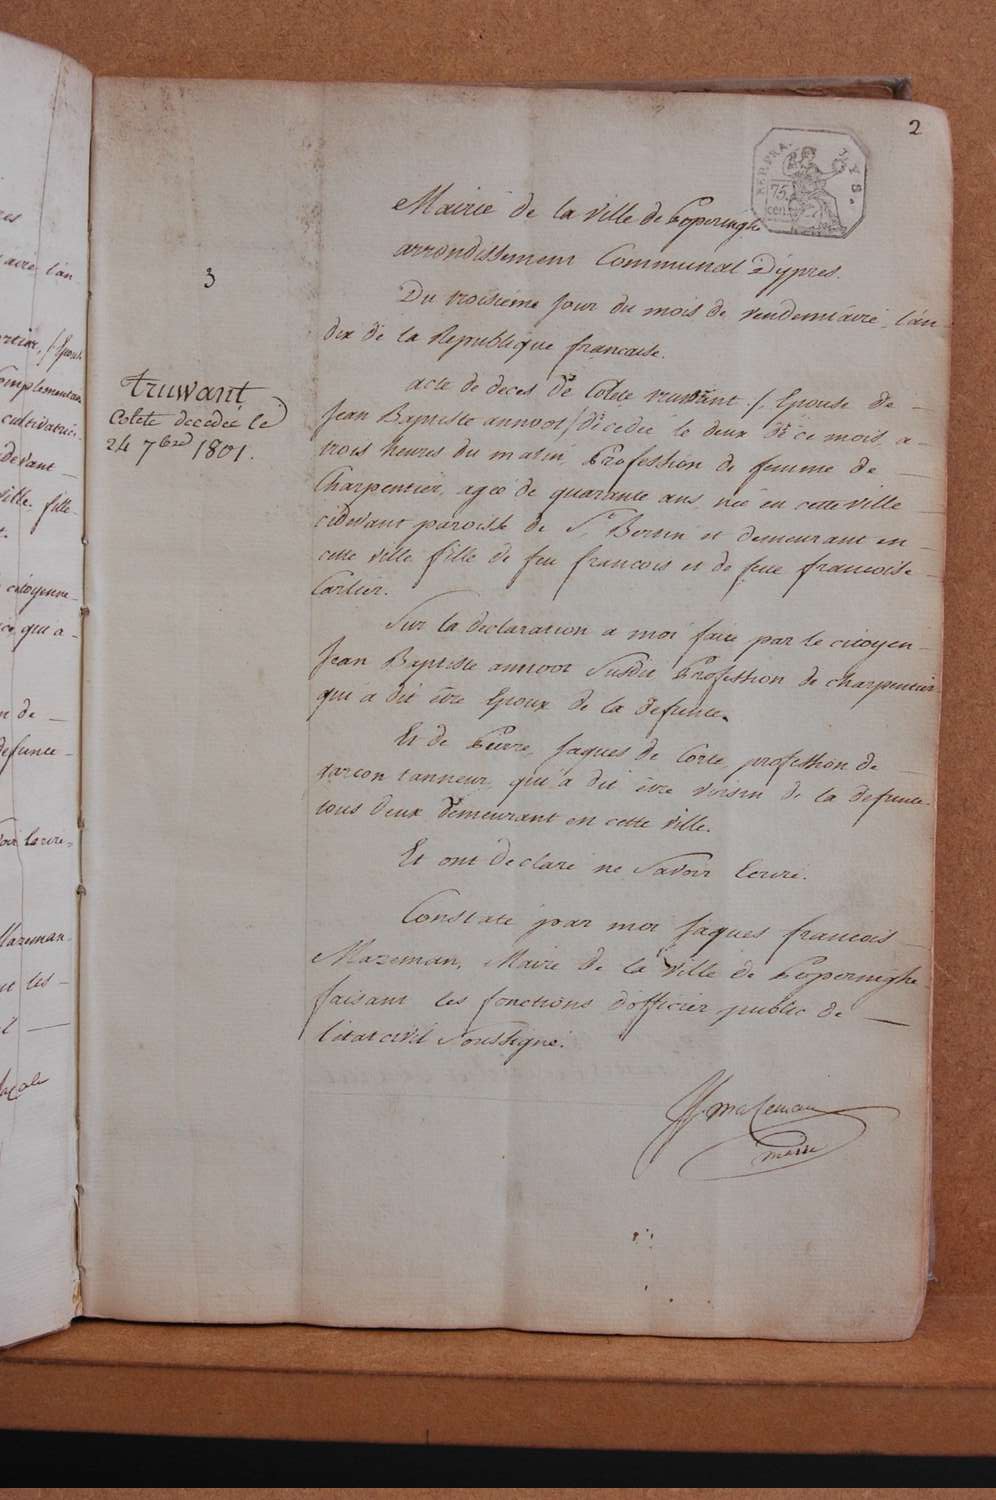 2
REP. FRA.
75
cen.
Mairie de la ville de Poperinghe
arrondissement Communal D'ypres.
3
Du troisieme Jour du mois de vendemiaire, l'an
dix de la Republique francaise.
truwant
Colete decedeé le
24 7bre 1801.
acte de deces de Colete truwant ./. Epouse de
Jean Baptiste annoot /. décédée le deux de ce mois, a
trois heures du matin, Profession de femme de
Charpentier, agée de quarante ans, née en cette ville
cidevant paroisse de St. Bertin et demeurant en
cette ville fille de feu francois et de feue francoise
Carlier.
Sur la declaration a moi faite par le citoyen
Jean Baptiste annoot Susdit Profession de charpentier
qui a dit être Epoux de la defunte.
Et de Pierre, Jaques de Corte, profession de
garcon tanneur, qui a dit être voisin de la defunte
tous deux demeurant en cette ville.
Et ont declaré ne Savoir Ecrire.
Constaté par moi Jaques francois
Mazeman, Maire de la ville de Poperinghe
faisant les fonctions d'officier public de
l'état civil Soussigné.
JJ. mazeman
maire